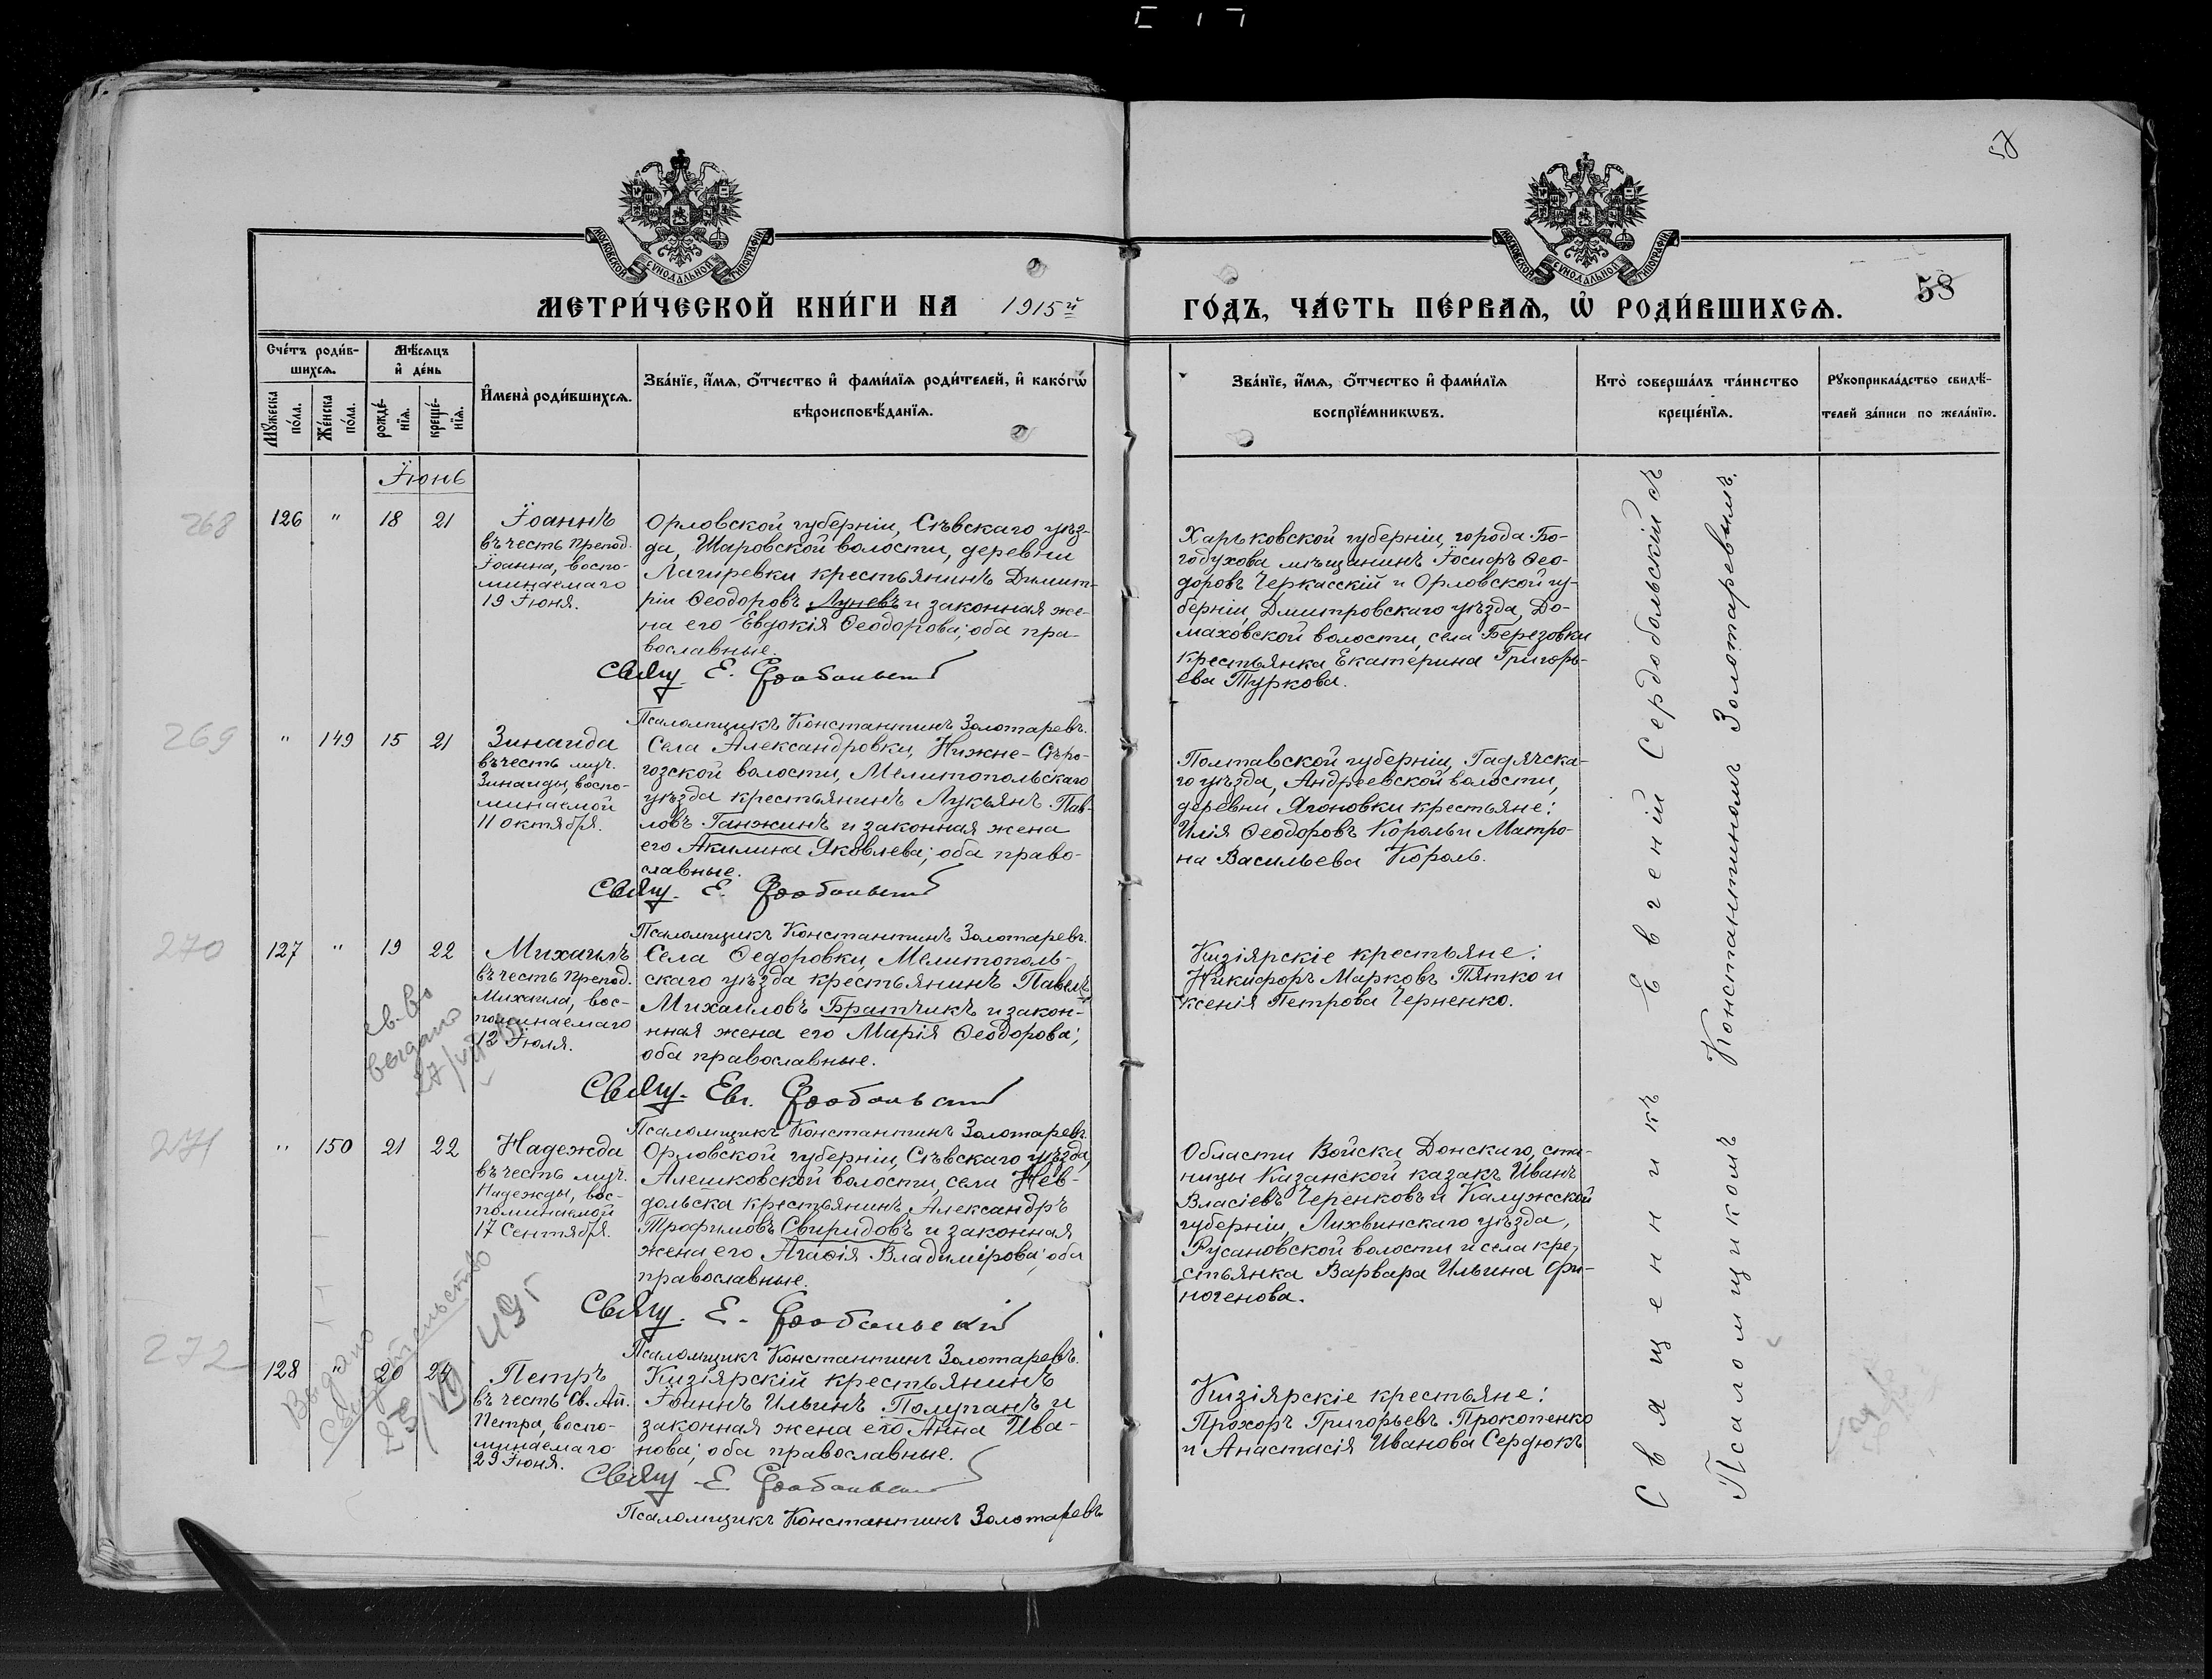 57
МОСКОВСКОЙ СѴНОДАЛЬНОЙ ТИПОГРАФІИ
МОСКОВСКОЙ СѴНОДАЛЬНОЙ ТИПОГРАФІИ
58
МЕТРИ́ЧЕСКОЙ КНИ́ГИ НА 1915й ГО́ДЪ, ЧА́СТЬ ПЕ́РВАѦ, Ѡ҆ РОДИ́ВШИХСѦ.
Сче́тъ роди́в-
шихсѧ.
Мꙋ́жеска по́ла.
Же́нска по́ла.
Мѣ́сѧцъ и҆ де́нь
рожде́-нїѧ.
креще́-нїѧ.
И҆мена̀ роди́вшихсѧ.
Зва́нїе, и҆́мѧ, ѻ҆́тчество и҆ фами́лїѧ роди́телей, и҆ како́гѡ
вѣроисповѣ́данїѧ.
Зва́нїе, и҆́мѧ, ѻ҆́тчество и҆ фами́лїѧ
воспрїе́мникѡвъ.
Кто̀ соверша́лъ та́инство
креще́нїѧ.
Рꙋкоприкла́дство свидѣ́-
телей за́писи по жела́нїю.
Іюнь
268
126 " 18 21
Іоаннъ
въ честь препод.
Іоанна, воспо-
минаемаго
19 Іюня.
Орловской губерніи, Сѣвскаго уѣз-
да, Шаровской волости, деревни
Лагиревки крестьянинъ Димит-
рій Ѳеодоровъ Луневъ и законная же-
на его Евдокія Ѳеодорова; оба пра-
вославные.
Свящ. Е. Сердобольскій
Псаломщикъ Константинъ Золотаревъ.
Харьковской губерніи, города Бо-
годухова мѣщанинъ Іосифъ Ѳео-
доровъ Черкасскій и Орловской гу-
берніи, Дмитровскаго уѣзда, До-
маховской волости, села Березовки
крестьянка Екатерина Григорь-
ева Туркова.
269
" 149 15 21
Зинаида
въ честь муч.
Зинаиды, воспо-
минаемой
11 октября.
Села Александровки, Нижне-Сѣро-
гозской волости, Мелитопольскаго
уѣзда крестьянинъ Лукьянъ Пав-
ловъ Ганжинъ и законная жена
его Акилина Яковлева; оба право-
славные.
Свящ. Е. Сердобольскій
Псаломщикъ Константинъ Золотаревъ.
Полтавской губерніи, Гадячска-
го уѣзда, Андреевской волости,
деревни Ягоновки крестьяне:
Илія Ѳеодоровъ Король и Матро-
на Васильева Король.
270
127 " 19 22
Михаилъ
въ честь препод.
Михаила, вос-
поминаемаго
12 Іюля.
Села Ѳедоровки, Мелитополь-
скаго уѣзда крестьянинъ Павелъ
Михаиловъ Братчикъ и закон-
ная жена его Марія Ѳеодорова;
оба православные.
Свящ. Евг. Сердобольскій
Псаломщикъ Константинъ Золотаревъ.
Кизіярскіе крестьяне:
Никифоръ Марковъ Пятко и
Ксенія Петрова Черненко.
св-во
выдано
27/VII
271
" 150 21 22
Надежда
въ честь муч.
Надежды, вос-
поминаемой
17 Сентября.
Орловской губерніи, Сѣвскаго уѣзда,
Алешковской волости, села Нев-
дольска крестьянинъ Александръ
Трофимовъ Свиридовъ и законная
жена его Агаѳія Владимірова; оба
православные.
Свящ. Е. Сердобольскій
Псаломщикъ Константинъ Золотаревъ.
Области Войска Донскаго, ста-
ницы Казанской казакъ Иванъ
Власіевъ Черенковъ и Калужской
губерніи, Лихвинскаго уѣзда,
Русановской волости и села кре-
стьянка Варвара Ильина Фи-
ногенова.
272
128 " 20 24
Петръ
въ честь Св. Ап.
Петра, воспо-
минаемаго
29 Іюня.
Кизіярскій крестьянинъ
Іоаннъ Ильинъ Полупанъ и
законная жена его Анна Ива-
нова; оба православные.
Свящ. Е. Сердобольскій
Псаломщикъ Константинъ Золотаревъ
Кизіярскіе крестьяне:
Прохоръ Григорьевъ Прокопенко
и Анастасія Иванова Сердюкъ
Выдано
свидѣтельство
Священникъ Евгеній Сердобольскій съ
Псаломщикомъ Константиномъ Золотаревымъ.